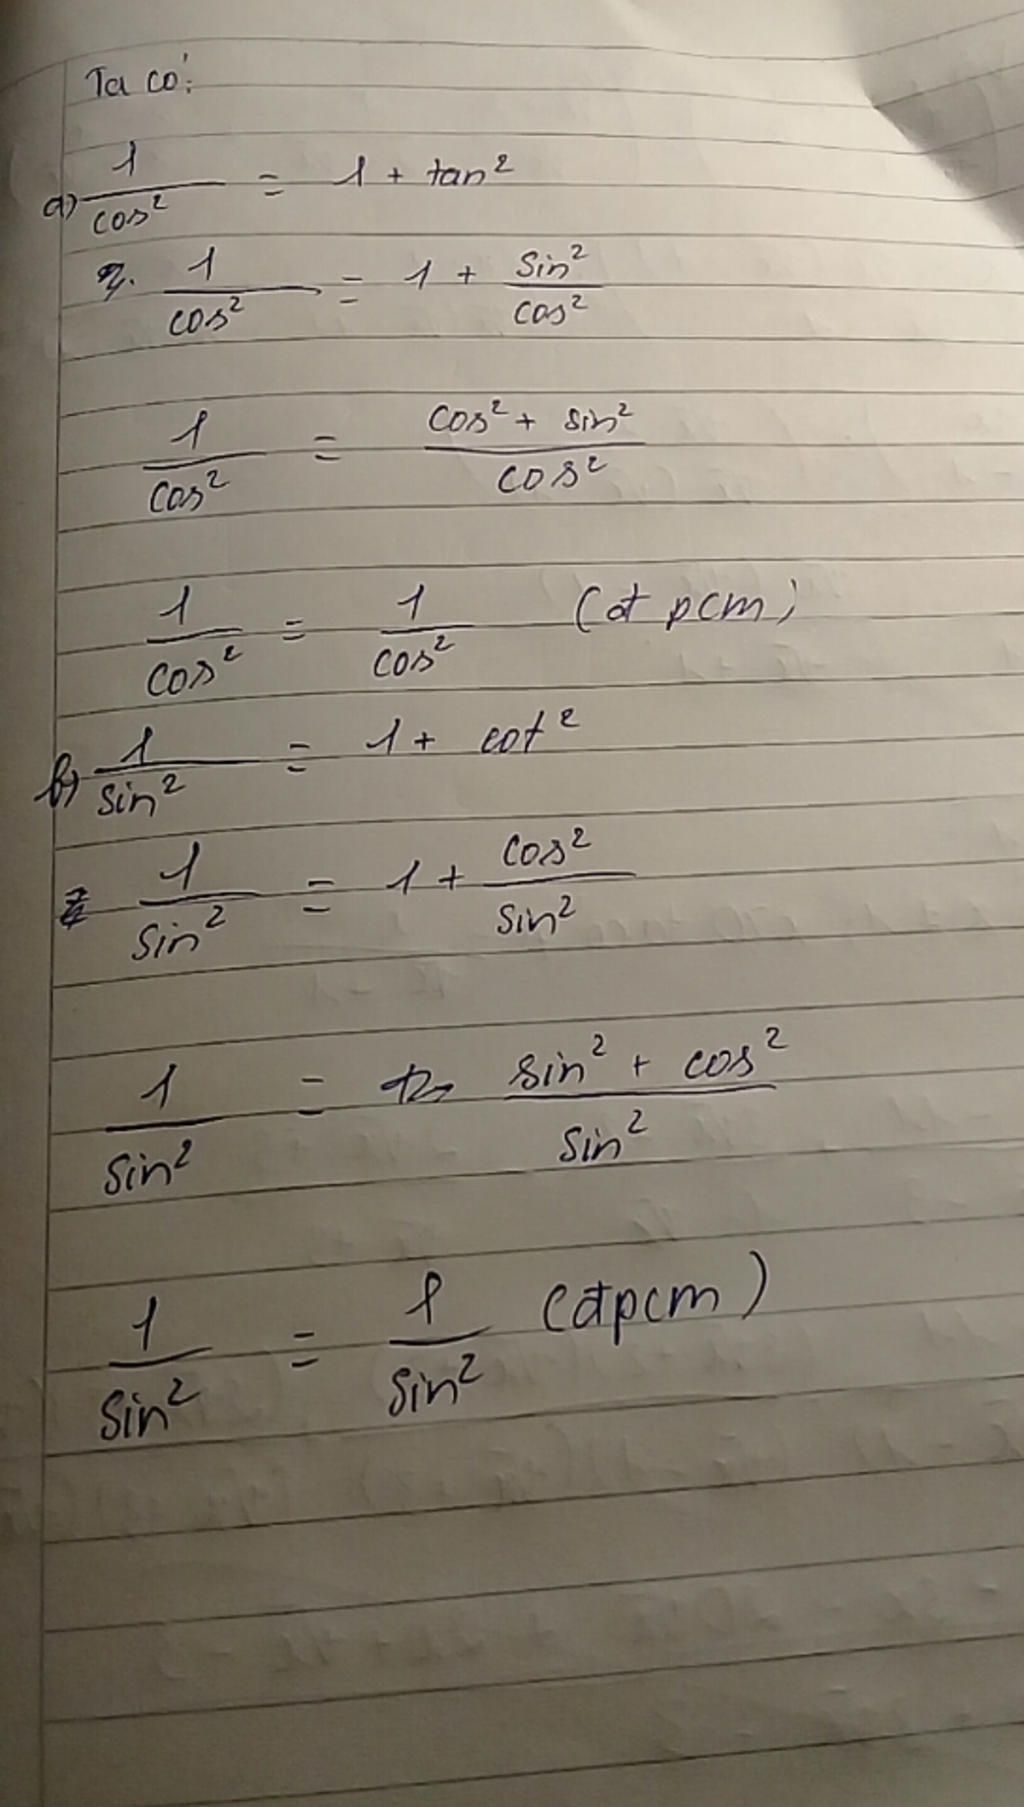 Ta có:
a) 1/cos² = 1 + tan²
1/cos² = 1 + sin²/cos²
1/cos² = (cos² + sin²)/cos²
1/cos² = 1/cos² (đpcm)
b) 1/sin² = 1 + cot²
1/sin² = 1 + cos²/sin²
1/sin² = (sin² + cos²)/sin²
1/sin² = 1/sin² (đpcm)